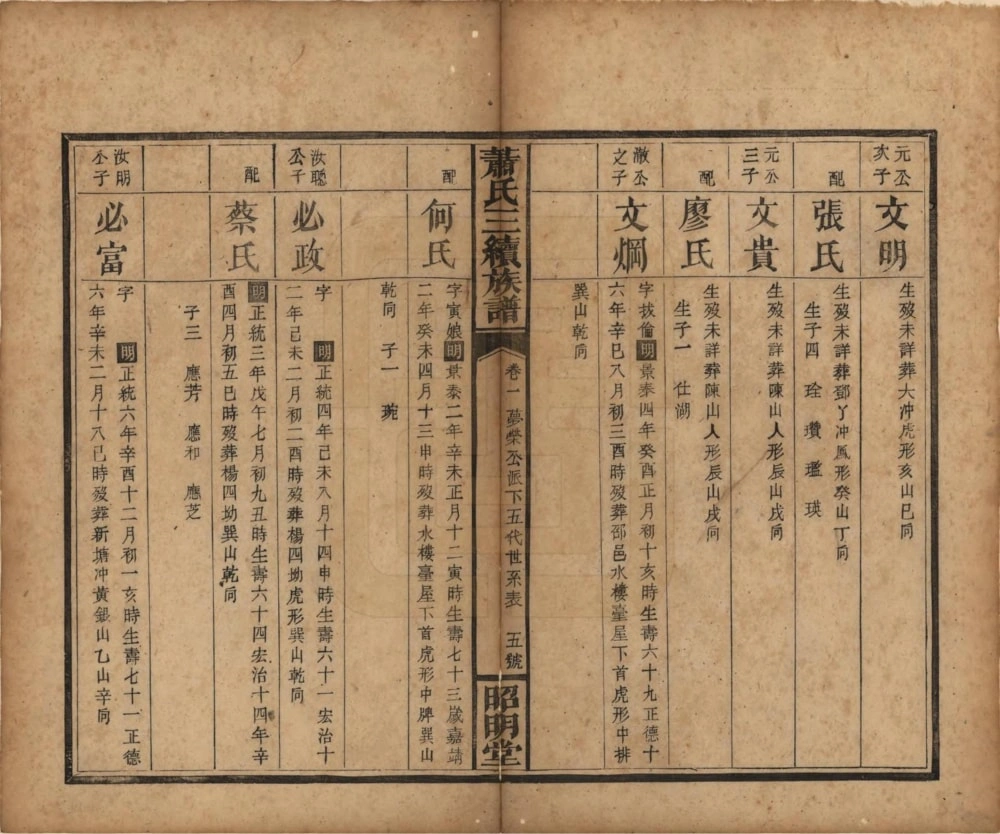 元公
次子
文明
生歿未詳葬大沖虎形亥山巳向
配
張氏
生歿未詳葬鄧丫沖鳳形癸山丁向
生子四　珍　瓚　璒　瑛
元公
三子
文貴
生歿未詳葬陳山人形辰山戌向
配
廖氏
生歿未詳葬陳山人形辰山戌向
生子一　仕湖
澈公
之子
文烱
字拔倫明景泰四年癸酉正月初十亥時生壽六十九正德十
六年辛巳八月初三酉時歿葬邵邑水樓臺屋下首虎形中排
巽山乾向
蕭氏三續族譜
卷一　夢榮公派下五代世系表　五號
昭明堂
配
何氏
字寅娘明景泰二年辛未正月十二寅時生壽七十三歲嘉靖
二年癸未四月十三申時歿葬水樓臺屋下首虎形中牌巽山
乾向　子一　琬
汝聰
公子
必政
字　明正統四年己未八月十四申時生壽六十一宏治十
二年己未二月初二酉時歿葬楊四坳虎形巽山乾向
配
蔡氏
明正統三年戊午七月初九丑時生壽六十四宏治十四年辛
酉四月初五巳時歿葬楊四坳巽山乾向
子三　應芳　應和　應芝
汝明
公子
必富
字　明正統六年辛酉十二月初一亥時生壽七十一正德
六年辛未二月十八巳時歿葬新塘沖黃銀山乙山辛向